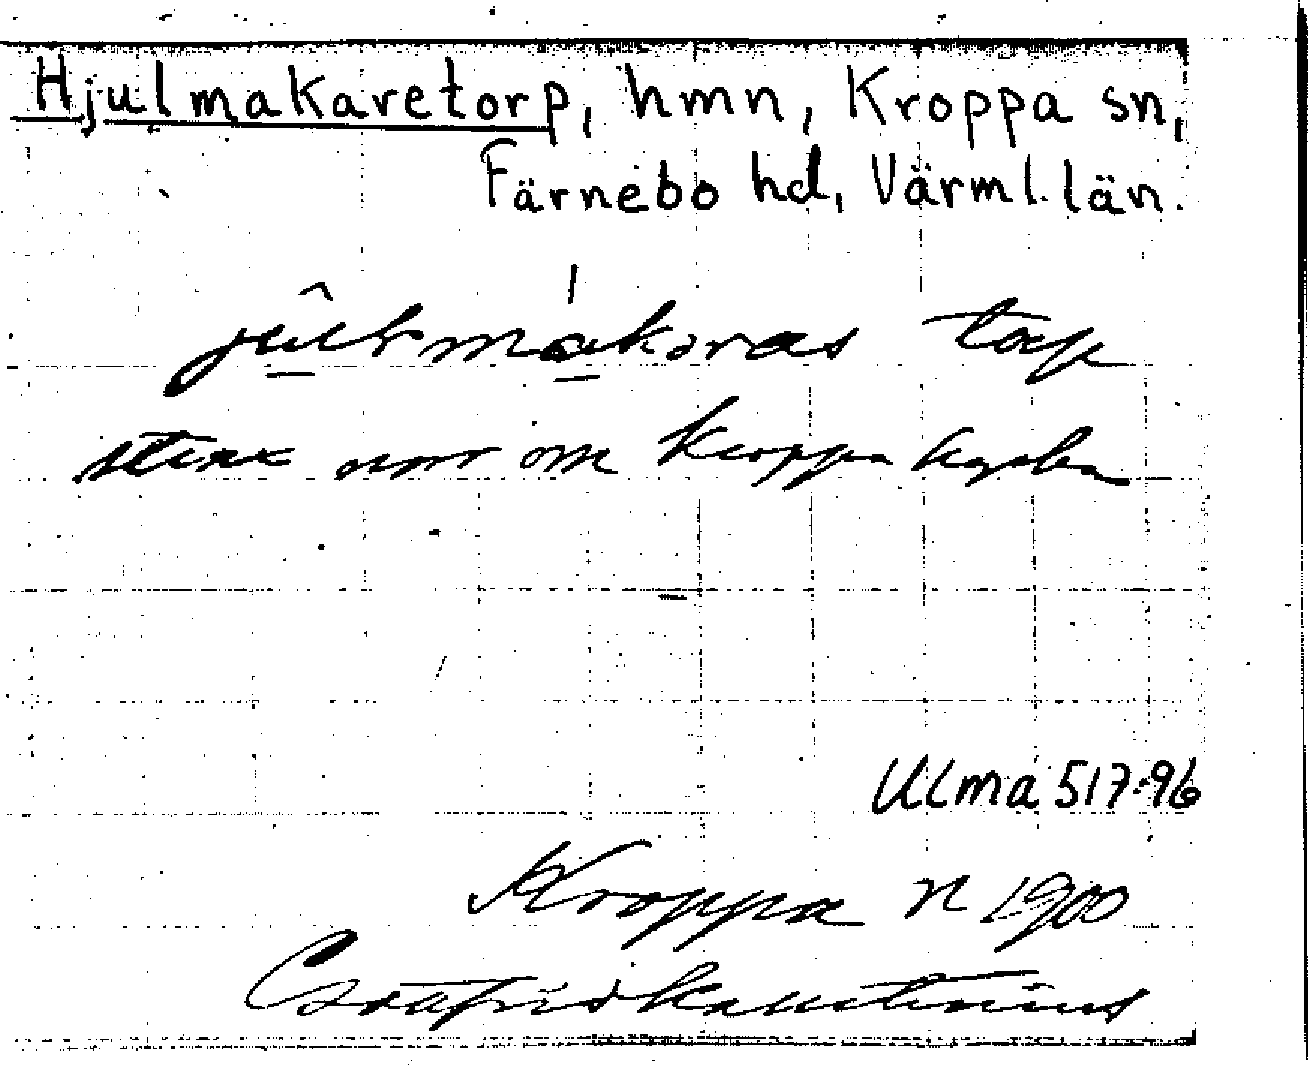 Hjulmakaretorp, hmn, Kroppa sn,
Färnebo hd, Värml. län.
torp
norr om Kroppa kyrka
Ulma 517:96
Kroppa n 1900
Gottfrid Kallstenius